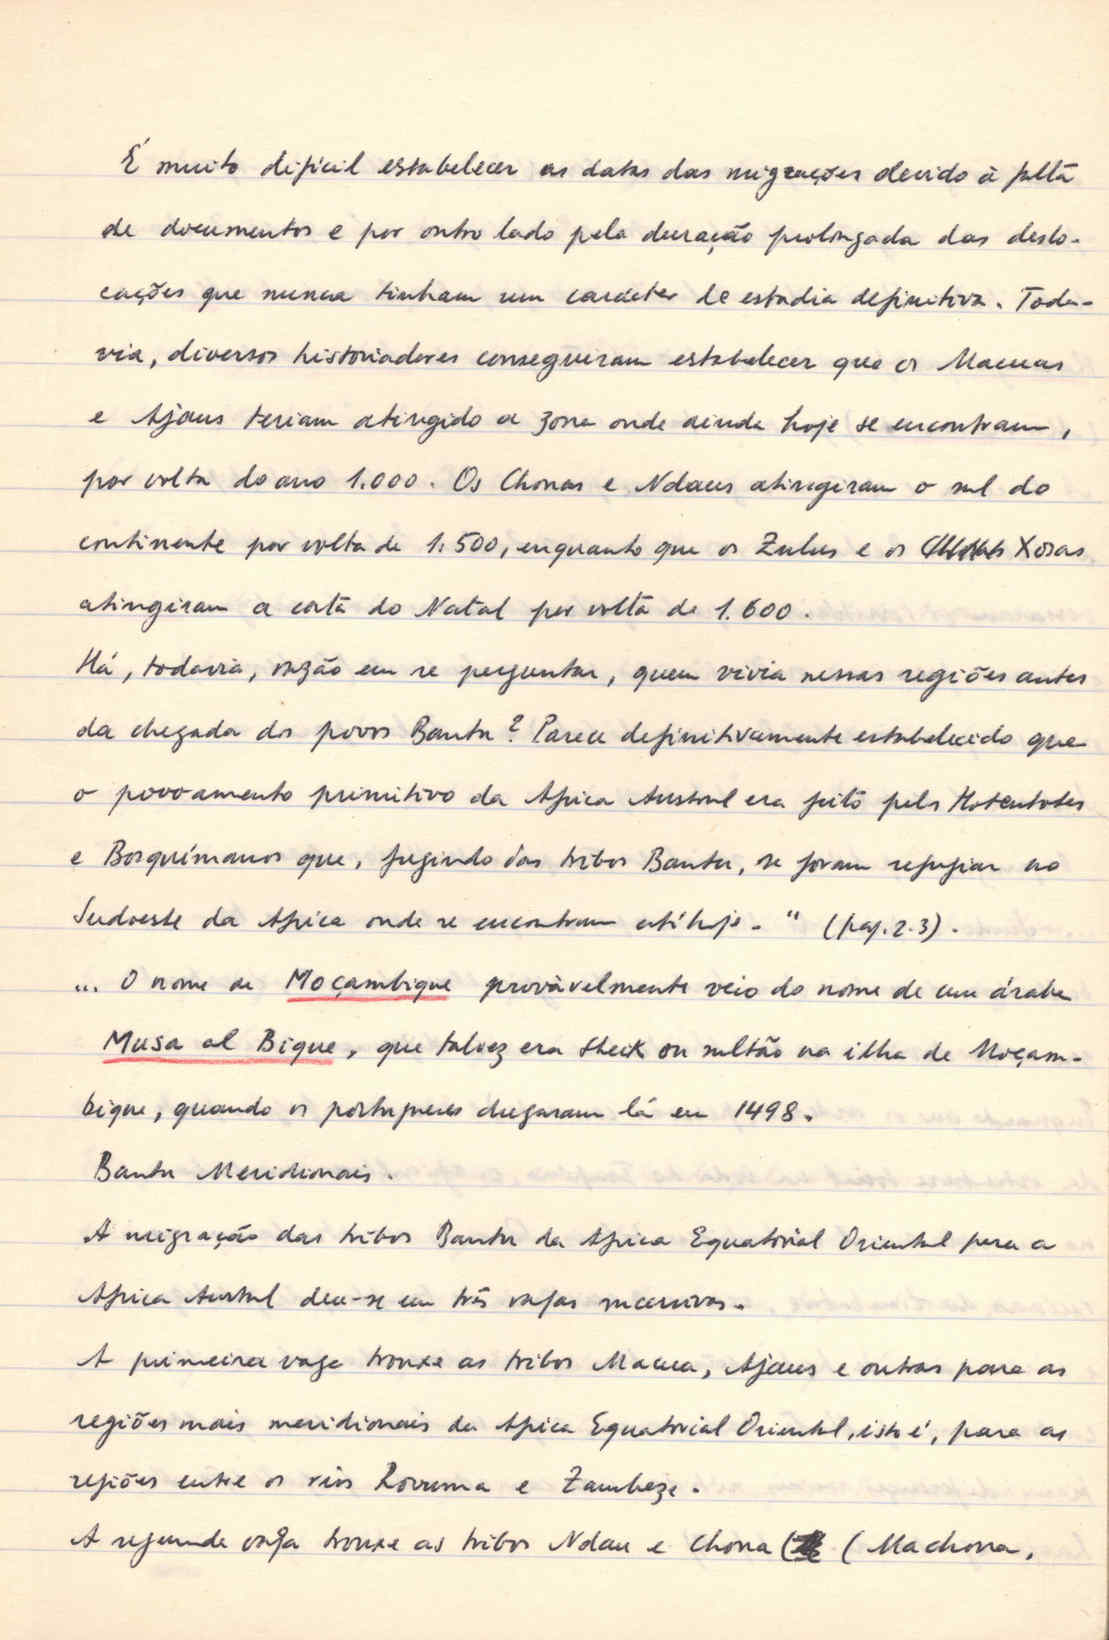 É muito difícil estabelecer as datas das migrações devido à falta
de documentos e por outro lado pela duração prolongada das deslo-
cações que nunca tinham um carácter de estadia definitiva. Toda-
via, diversos historiadores conseguiram estabelecer que os Macuas
e Ajaus teriam atingido a zona onde ainda hoje se encontram,
por volta do ano 1.000. Os Chonas e Ndaus atingiram o sul do
continente por volta de 1.500, enquanto que os Zulus e os Xosas
atingiram a costa do Natal por volta de 1.600.
Há, todavia, razão em se perguntar, quem vivia nessas regiões antes
da chegada dos povos Bantu? Parece definitivamente estabelecido que
o povoamento primitivo da Africa Austral era feito pelos Hotentotes
e Bosquímanos que, fugindo das tribos Bantu, se foram refugiar no
Sudoeste da Africa onde se encontram até hoje. " (pag. 2-3).
... O nome de Moçambique provàvelmente veio do nome de um árabe
Musa al Bique, que talvez era Sheik ou sultão na ilha de Moçam-
bique, quando os portugueses chegaram lá em 1498.
Bantu Meridionais.
A migração das tribos Bantu da Africa Equatorial Oriental para a
Africa Austral deu-se em três vagas sucessivas.
A primeira vaga trouxe as tribos Macua, Ajaus e outras para as
regiões mais meridionais da Africa Equatorial Oriental, isto é, para as
regiões entre os rios Rovuma e Zambeze.
A segunda vaga trouxe as tribos Ndau e Chona (Machona,